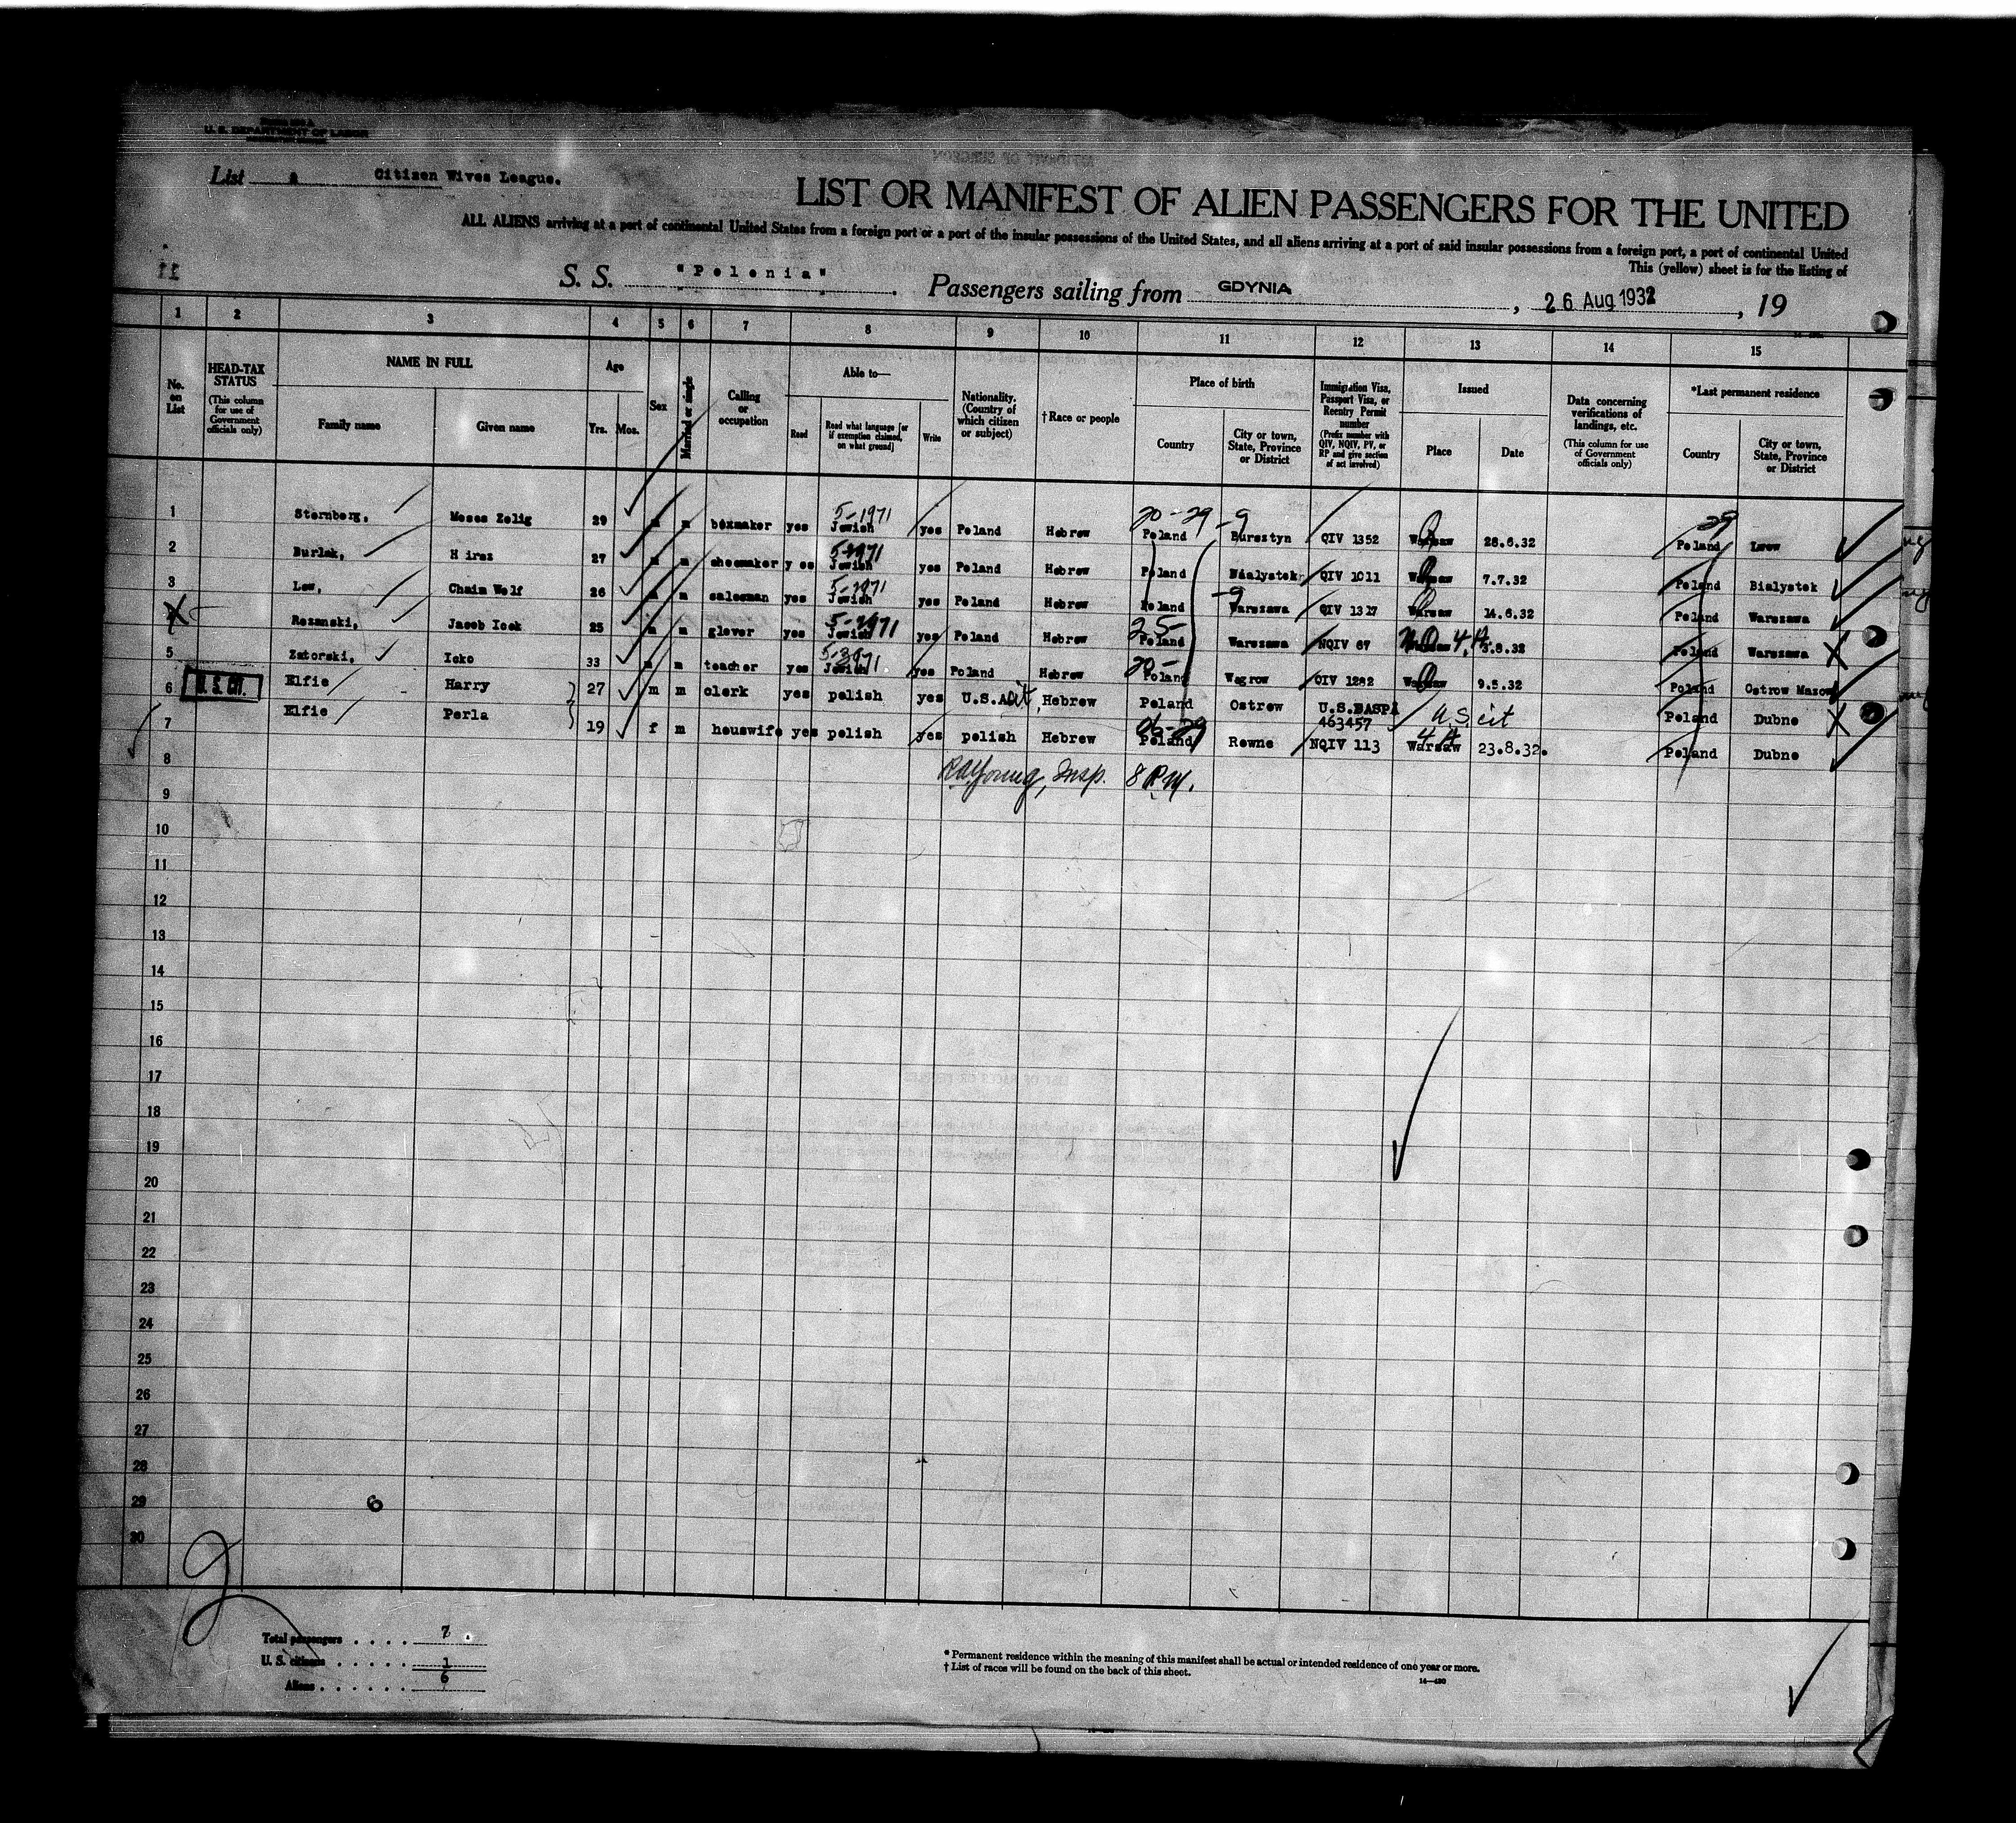 U. S. DEPARTMENT OF LABOR
List a Citizen Wives League.
LIST OR MANIFEST OF ALIEN PASSENGERS FOR THE UNITED
ALL ALIENS arriving at a port of continental United States from a foreign port or a port of the insular possessions of the United States, and all aliens arriving at a port of said insular possessions from a foreign port, a port of continental United
This (yellow) sheet is for the listing of
S. S. "Polonia" Passengers sailing from GDYNIA, 26 Aug 1932, 19
1 2 3 4 5 6 7 8 9 10 11 12 13 14 15
No. on List
HEAD-TAX STATUS (This column for use of Government officials only)
NAME IN FULL
Family name Given name
Age
Yrs. Mos.
Sex
Married or single
Calling or occupation
Able to—
Read Read what language [or if exemption claimed, on what ground] Write
Nationality. (Country of which citizen or subject)
†Race or people
Place of birth
Country City or town, State, Province or District
Immigration Visa, Passport Visa, or Reentry Permit number (Prefix number with QIV, NQIV, PV, or RP and give section of act involved)
Issued
Place Date
Data concerning verifications of landings, etc. (This column for use of Government officials only)
*Last permanent residence
Country City or town, State, Province or District
5-1971 20-29 -9 29
1 Sternberg, Moses Zelig 29 m m boxmaker yes Jewish yes Poland Hebrew Poland Bursztyn QIV 1352 Warsaw 28.6.32 Poland Lwow
2 Burlak, Hirsz 27 m m shoemaker yes Jewish yes Poland Hebrew Poland Bialystok QIV 1011 Warsaw 7.7.32 Poland Bialystok
3 Lew, Chaim Wolf 26 m m salesman yes Jewish yes Poland Hebrew Poland Warszawa QIV 1327 Warsaw 14.6.32 Poland Warszawa
Rozanski, Jacob Icek 25 m m glover yes Jewish yes Poland Hebrew Poland Warszawa NQIV 67 Warsaw .8.32 Poland Warszawa
5 Zatorski, Icko 33 m m teacher yes Jewish yes Poland Hebrew Poland Wegrow QIV 1282 Warsaw 9.5.32 Poland Ostrow Mazow
6 U. S. CIT. Elfie Harry 27 m m clerk yes polish yes U.S.A cit. Hebrew Poland Ostrow U.S.PASPA 463457 U.S. cit Poland Dubno
7 Elfie Perla 19 f m houswife yes polish yes polish Hebrew Poland Rowne NQIV 113 Warsaw 23.8.32. Poland Dubno
8 RAYoung, Insp. 8 P.M.
9
10
11
12
13
14
15
16
17
18
19
20
21
22
23
24
25
26
27
28
29 6
30
Total passengers . . . . 7
U. S. citizens . . . . . 1
Aliens . . . . . . 6
* Permanent residence within the meaning of this manifest shall be actual or intended residence of one year or more.
† List of races will be found on the back of this sheet.
14—430